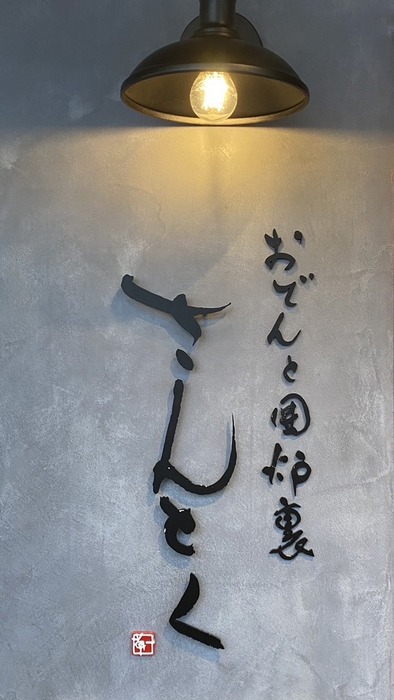 おでんと囲炉裏
さんとく